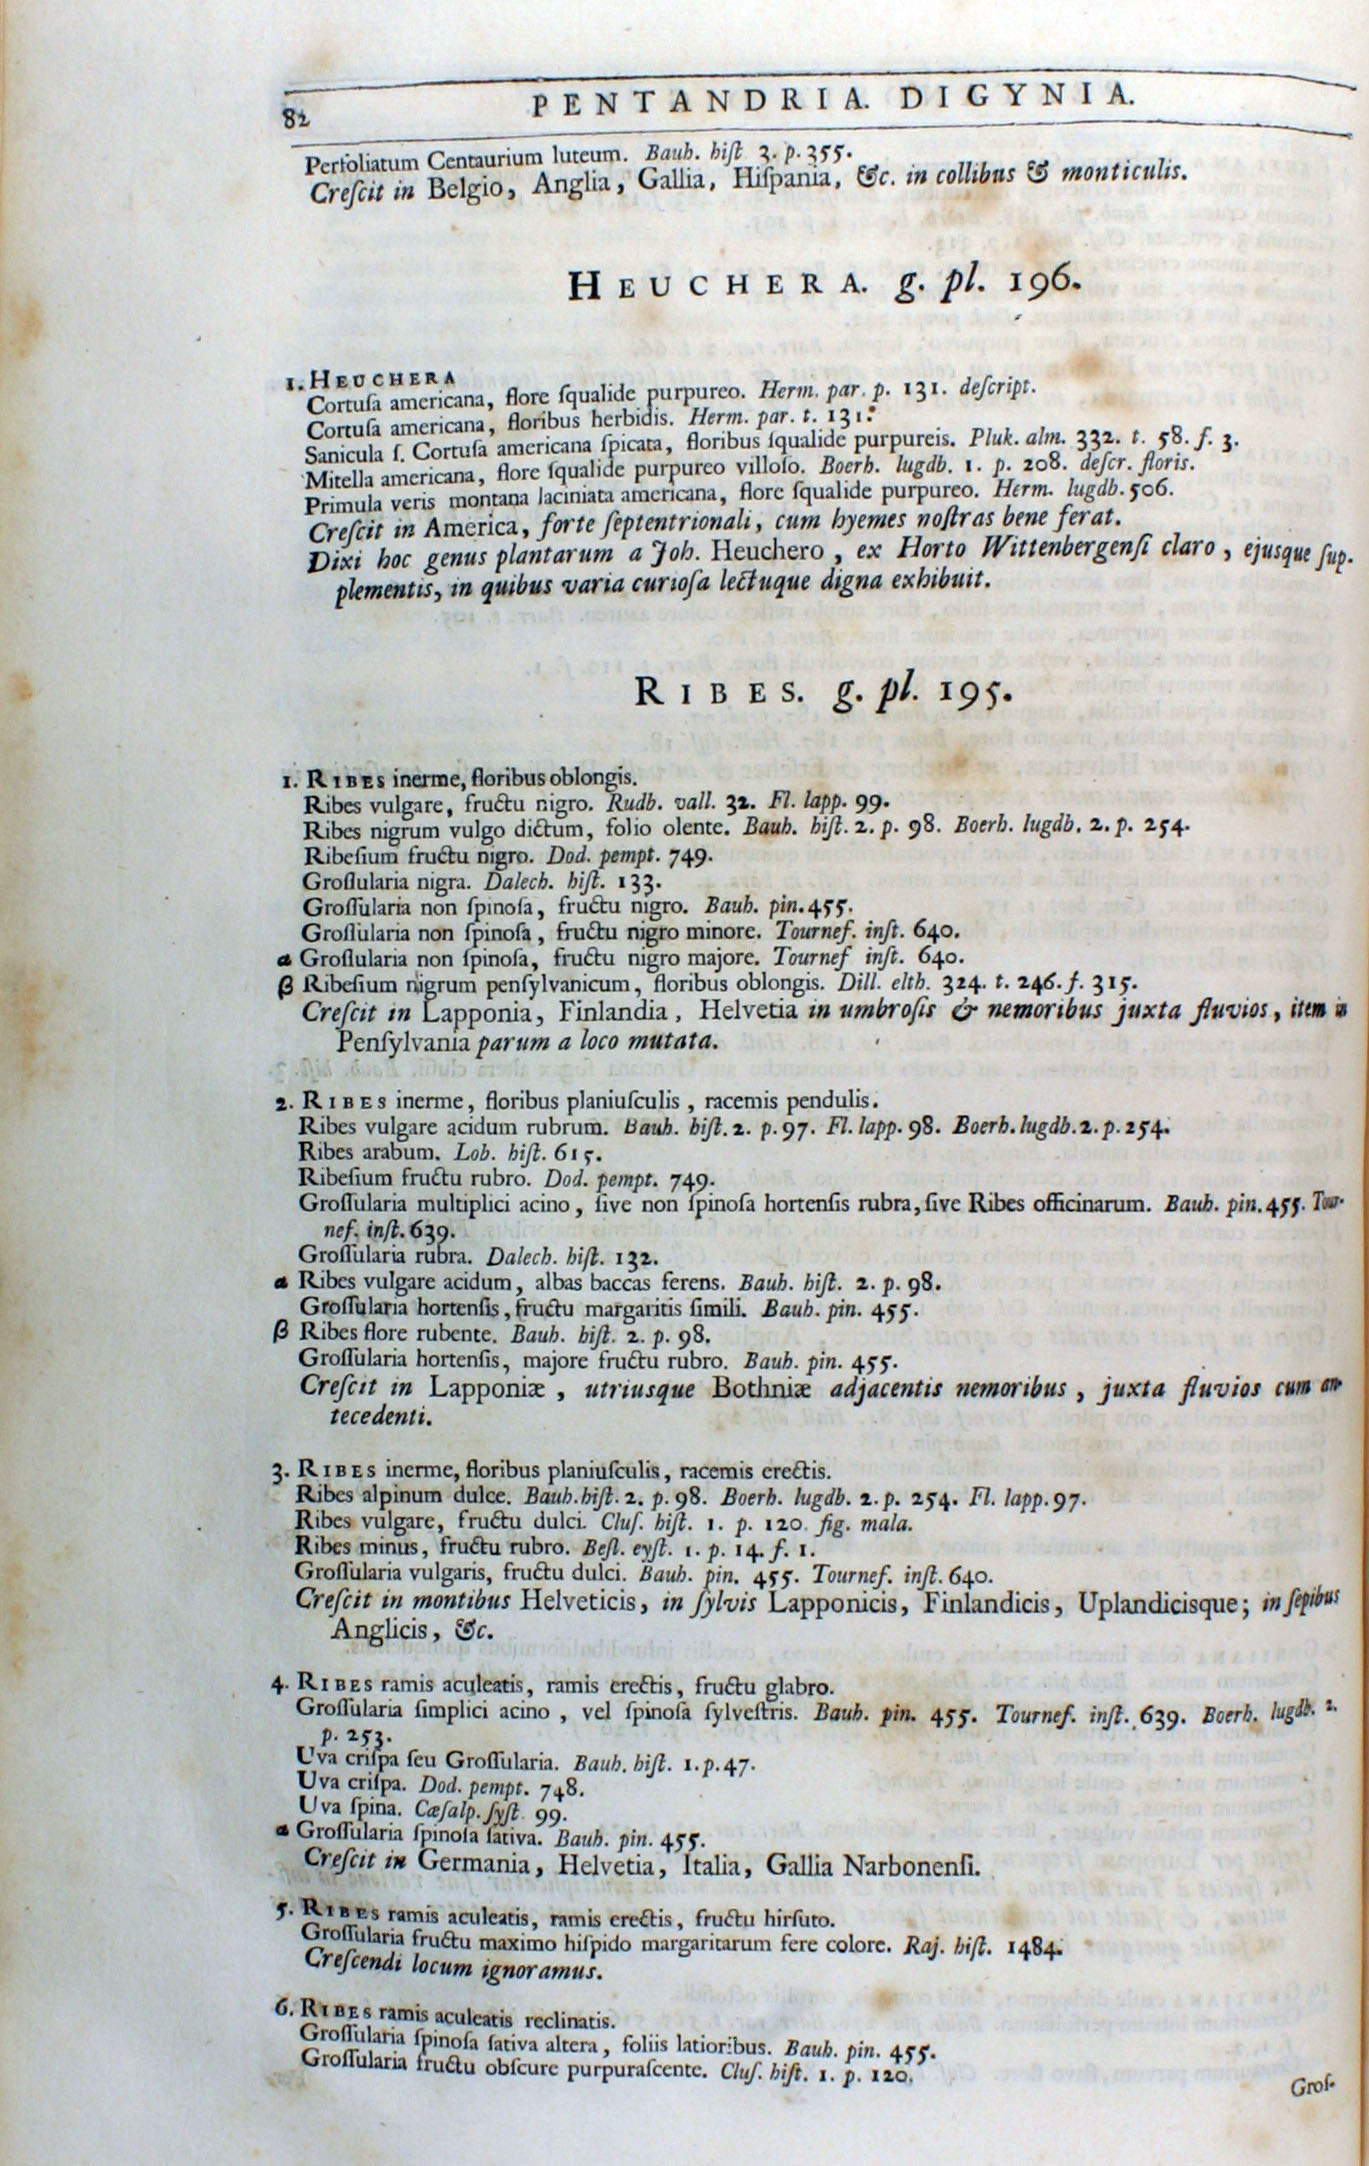 82 PENTANDRIA. DIGYNIA.
Perfoliatum Centaurium luteum. Bauh. hiſt 3. p. 355.
Creſcit in Belgio, Anglia, Gallia, Hiſpania, &c. in collibus & monticulis.
HEUCHERA. g. pl. 196.
1. HEUCHERA
Cortuſa americana, flore ſqualide purpureo. Herm. par. p. 131. deſcript.
Cortuſa americana, floribus herbidis. Herm. par. t. 131.
Sanicula ſ. Cortuſa americana ſpicata, floribus ſqualide purpureis. Pluk. alm. 332. t. 58. f. 3.
Mitella americana, flore ſqualide purpureo villoſo. Boerh. lugdb. 1. p. 208. deſcr. floris.
Primula veris montana laciniata americana, flore ſqualide purpureo. Herm. lugdb. 506.
Creſcit in America, forte ſeptentrionali, cum hyemes noſtras bene ferat.
Dixi hoc genus plantarum a Joh. Heuchero, ex Horto Wittenbergenſi claro, ejusque ſup-
plementis, in quibus varia curioſa lectuque digna exhibuit.
RIBES. g. pl. 195.
1. RIBES inerme, floribus oblongis.
Ribes vulgare, fructu nigro. Rudb. vall. 32. Fl. lapp. 99.
Ribes nigrum vulgo dictum, folio olente. Bauh. hiſt. 2. p. 98. Boerh. lugdb. 2. p. 254.
Ribeſium fructu nigro. Dod. pempt. 749.
Groſſularia nigra. Dalech. hiſt. 133.
Groſſularia non ſpinoſa, fructu nigro. Bauh. pin. 455.
Groſſularia non ſpinoſa, fructu nigro minore. Tournef. inſt. 640.
α Groſſularia non ſpinoſa, fructu nigro majore. Tournef inſt. 640.
β Ribeſium nigrum penſylvanicum, floribus oblongis. Dill. elth. 324. t. 246. f. 315.
Creſcit in Lapponia, Finlandia, Helvetia in umbroſis & nemoribus juxta fluvios, item in
Penſylvania parum a loco mutata.
2. RIBES inerme, floribus planiuſculis, racemis pendulis.
Ribes vulgare acidum rubrum. Bauh. hiſt. 2. p. 97. Fl. lapp. 98. Boerh. lugdb. 2. p. 254.
Ribes arabum. Lob. hiſt. 615.
Ribeſium fructu rubro. Dod. pempt. 749.
Groſſularia multiplici acino, ſive non ſpinoſa hortenſis rubra, ſive Ribes officinarum. Bauh. pin. 455. Tour-
nef. inſt. 639.
Groſſularia rubra. Dalech. hiſt. 132.
α Ribes vulgare acidum, albas baccas ferens. Bauh. hiſt. 2. p. 98.
Groſſularia hortenſis, fructu margaritis ſimili. Bauh. pin. 455.
β Ribes flore rubente. Bauh. hiſt. 2. p. 98.
Groſſularia hortenſis, majore fructu rubro. Bauh. pin. 455.
Creſcit in Lapponiæ, utriusque Bothniæ adjacentis nemoribus, juxta fluvios cum an-
tecedenti.
3. RIBES inerme, floribus planiuſculis, racemis erectis.
Ribes alpinum dulce. Bauh. hiſt. 2. p. 98. Boerh. lugdb. 2. p. 254. Fl. lapp. 97.
Ribes vulgare, fructu dulci. Cluſ. hiſt. 1. p. 120. fig. mala.
Ribes minus, fructu rubro. Beſl. eyſt. 1. p. 14. f. 1.
Groſſularia vulgaris, fructu dulci. Bauh. pin. 455. Tournef. inſt. 640.
Creſcit in montibus Helveticis, in ſylvis Lapponicis, Finlandicis, Uplandicisque; in ſepibus
Anglicis, &c.
4. RIBES ramis aculeatis, ramis erectis, fructu glabro.
Groſſularia ſimplici acino, vel ſpinoſa ſylveſtris. Bauh. pin. 455. Tournef. inſt. 639. Boerh. lugdb. 2.
p. 253.
Uva criſpa ſeu Groſſularia. Bauh. hiſt. 1. p. 47.
Uva criſpa. Dod. pempt. 748.
Uva ſpina. Cæſalp. ſyſt. 99.
α Groſſularia ſpinoſa ſativa. Bauh. pin. 455.
Creſcit in Germania, Helvetia, Italia, Gallia Narbonenſi.
5. RIBES ramis aculeatis, ramis erectis, fructu hirſuto.
Groſſularia fructu maximo hiſpido margaritarum fere colore. Raj. hiſt. 1484.
Creſcendi locum ignoramus.
6. RIBES ramis aculeatis reclinatis.
Groſſularia ſpinoſa ſativa altera, foliis latioribus. Bauh. pin. 455.
Groſſularia fructu obſcure purpuraſcente. Cluſ. hiſt. 1. p. 120.
Groſ-